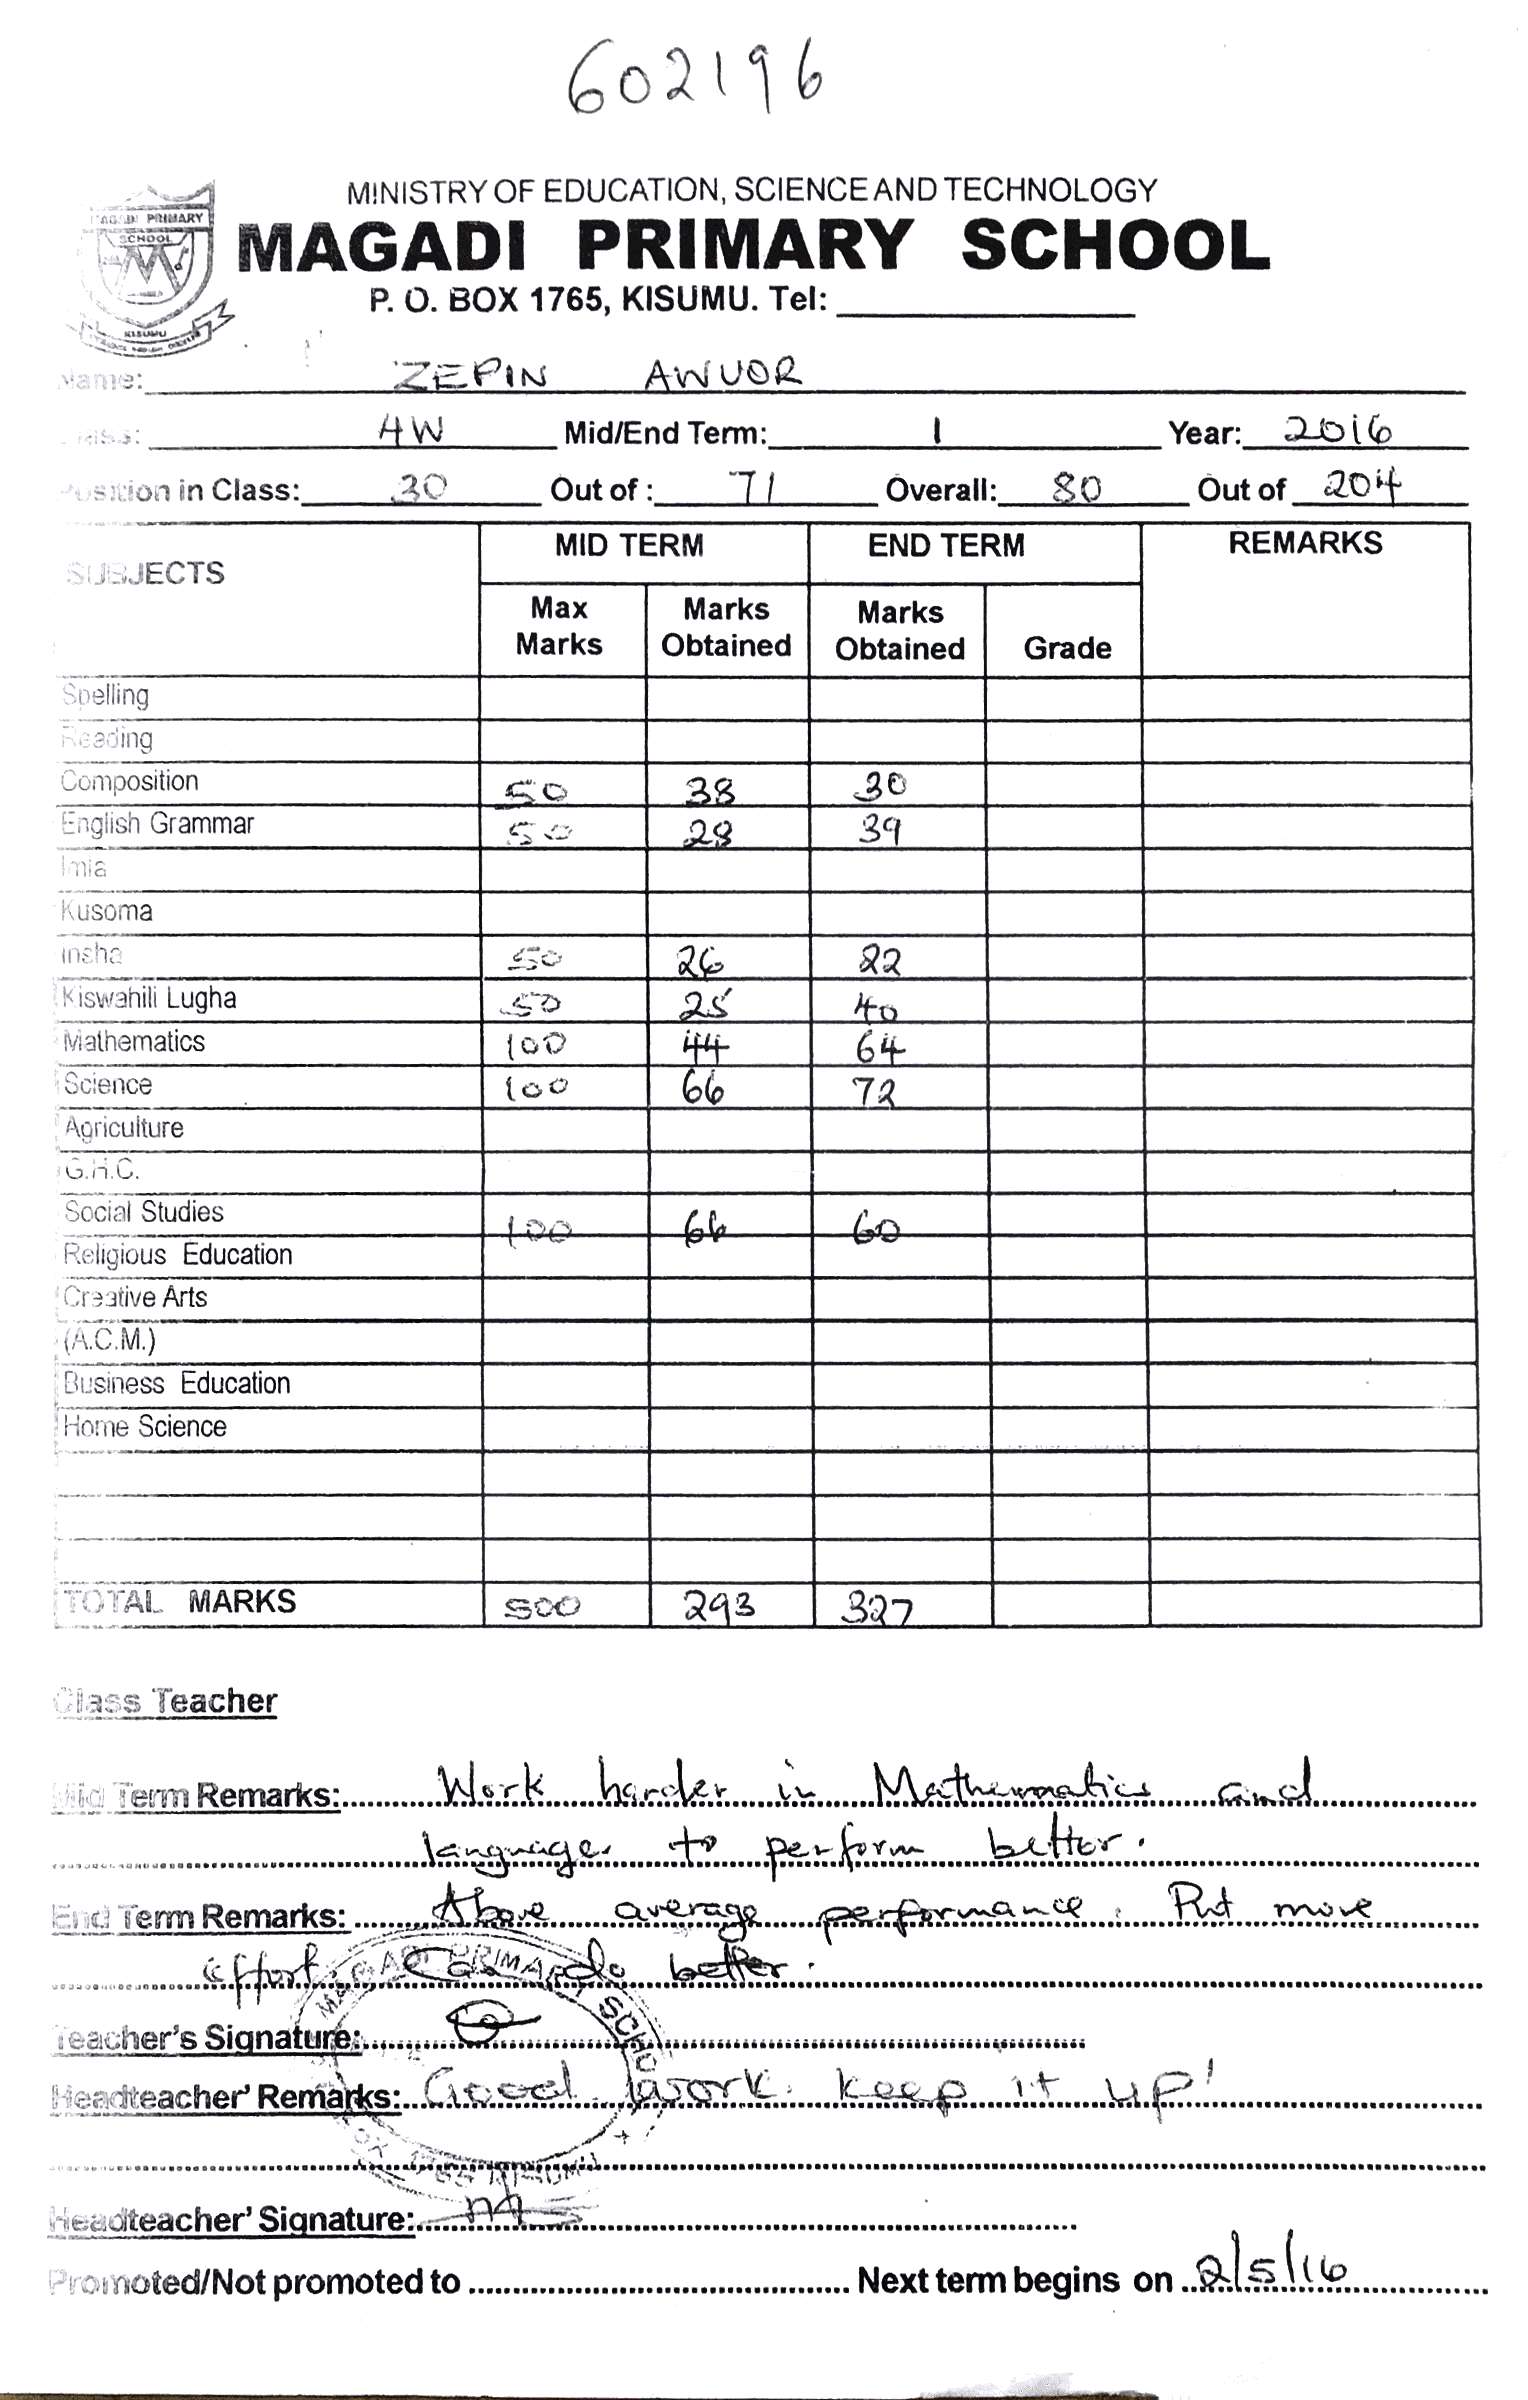 602196
MAGADI PRIMARY
SCHOOL
KISUMU
MINISTRY OF EDUCATION, SCIENCE AND TECHNOLOGY
MAGADI PRIMARY SCHOOL
P. O. BOX 1765, KISUMU. Tel:
Name: ZEPIN AWUOR
Class: 4W Mid/End Term: 1 Year: 2016
Position in Class: 30 Out of : 71 Overall: 80 Out of 204
SUBJECTS MID TERM END TERM REMARKS
Max Marks Marks Obtained Marks Obtained Grade
Spelling
Reading
Composition 50 38 30
English Grammar 50 28 39
Imla
Kusoma
Insha 50 26 22
Kiswahili Lugha 50 25 40
Mathematics 100 44 64
Science 100 66 72
Agriculture
G.H.C.
Social Studies 100 66 60
Religious Education
Creative Arts
(A.C.M.)
Business Education
Home Science
TOTAL MARKS 500 293 327
Class Teacher
Mid Term Remarks: Work harder in Mathematics and
languages to perform better.
End Term Remarks: Above average performance. Put more
effort. Can do better.
MAGADI PRIMARY SCHOOL
Teacher's Signature:
Headteacher' Remarks: Good work. keep it up!
BOX 1765 KISUMU
Headteacher' Signature:
Promoted/Not promoted to Next term begins on 2/5/16